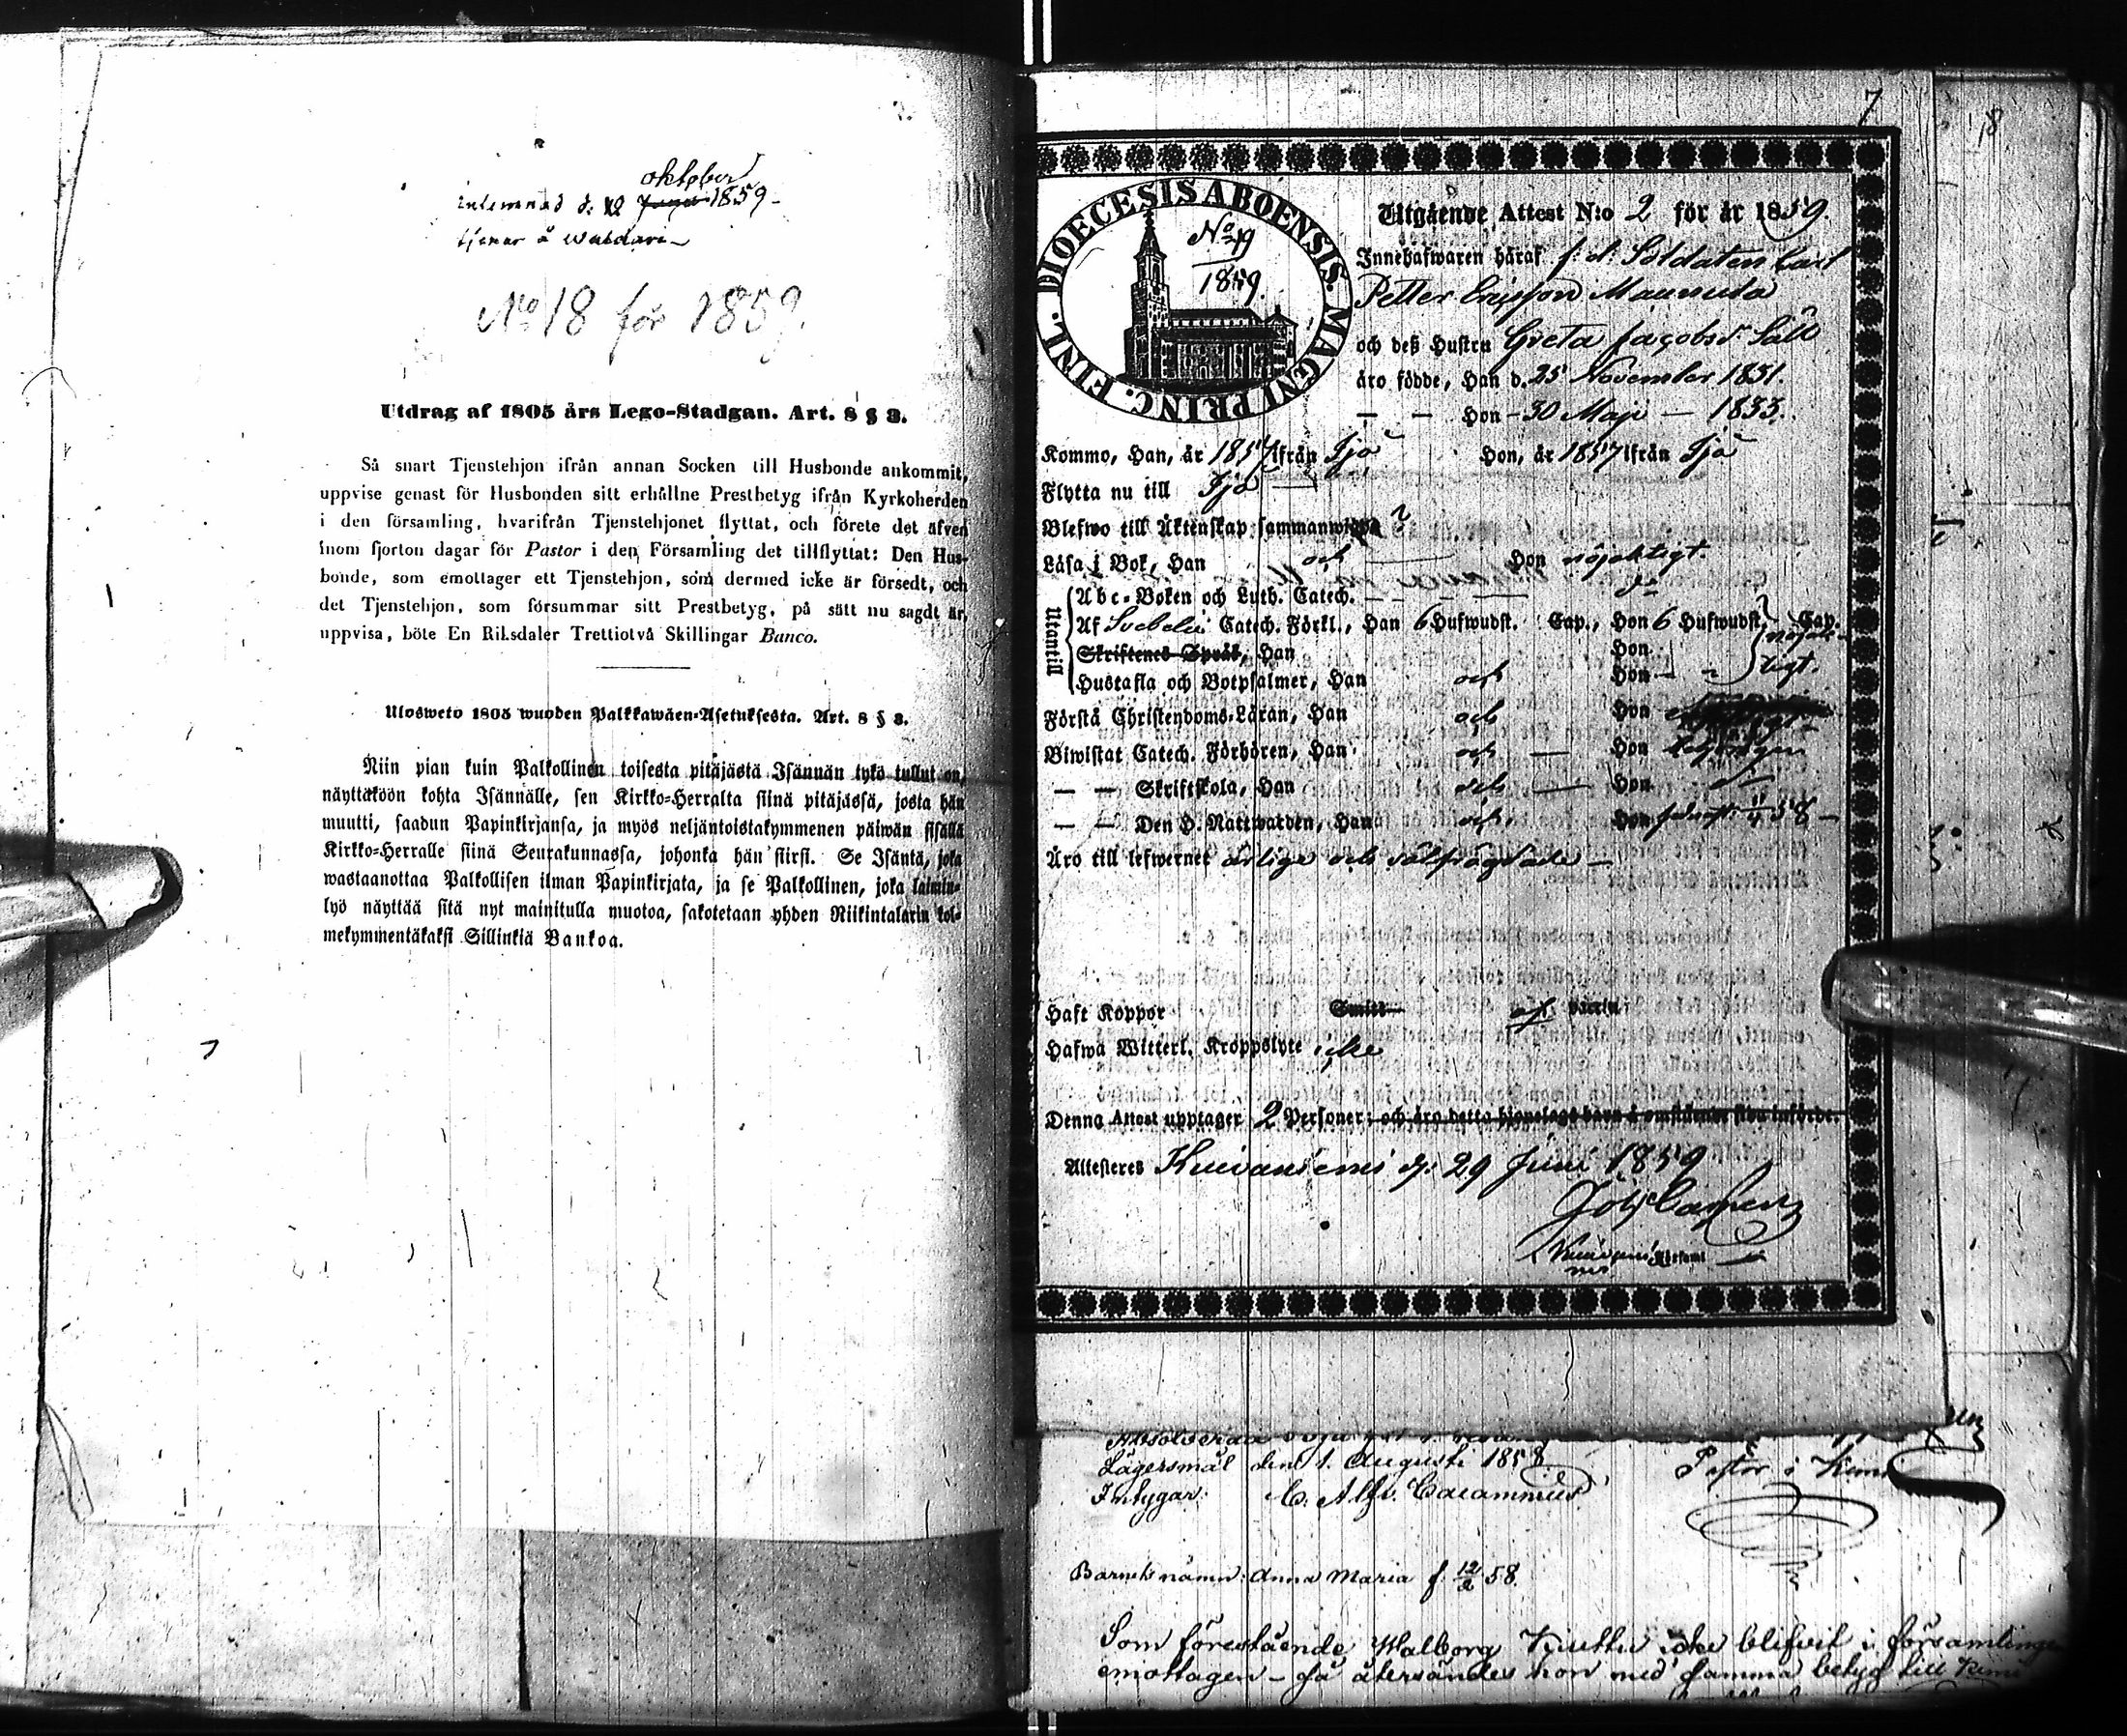 oktober
inlemnad d. 12 Juni 1859 –
tjenar å
No 18 för 1859.
Utdrag af 1805 års Lego-Stadgan. Art. 8 § 3.
Så snart Tjenstehjon ifrån annan Socken till Husbonde ankommit,
uppvise genast för Husbonden sitt erhållne Prestbetyg ifrån Kyrkoherden
i den församling, hvarifrån Tjenstehjonet flyttat, och förete det äfven
inom fjorton dagar för Pastor i den Församling det tillflyttat: Den Hus-
bonde, som emottager ett Tjenstehjon, som dermed icke är försedt, och
det Tjenstehjon, som försummar sitt Prestbetyg, på sätt nu sagdt är,
uppvisa, böte En Riksdaler Trettiotvå Skillingar Banco.
Ulosweto 1805 wuoden Palkkawäen-Asetuksesta. Art. 8 § 3.
Niin pian kuin Palkollinen toisesta pitäjästä Isännän tykö tullut on,
näyttäköön kohta Isännälle, sen Kirkko-Herralta siinä pitäjässä, josta hän
muutti, saadun Papinkirjansa, ja myös neljäntoistakymmenen päiwän sisällä
Kirkko-Herralle siinä Seurakunnassa, johonka hän siirsi. Se Isäntä, joka
wastaanottaa Palkollisen ilman Papinkirjata, ja se Palkollinen, joka laimin-
lyö näyttää sitä nyt mainitulla muotoa, sakotetaan yhden Riikintalarin kol-
mekymmentäkaksi Sillinkiä Bankoa.
7
18
DIOECESIS ABOENSIS. MAGNI PRINC. FINL.
No 19
1859.
Utgående Attest N:o 2 för år 1859.
Innehafwaren häraf f: d: Soldaten Carl
Petter Ericsson Maunula
och deß Hustru Greta Jacobsd:
äro födde, Han d. 25 November 1831.
— — Hon – 30 Maji — 1833.
Kommo, Han, år 1857 ifrån Ijo Hon, år 1857 ifrån Ijo
Flytta nu till Ijo —
Blefwo till Äktenskap sammanwigde ?
Läsa i Bok, Han och — Hon nöjaktigt.
Utantill
Abc-Boken och Luth. Catech. — — — do
Af Svebelii Catech. Förkl., Han 6 Hufwudst. Cap., Hon 6 Hufwudst. Cap.
Skriftenes Språk, Han Hon nöjak-
Hustafla och Botpsalmer, Han och Hon — tigt.
Förstå Christendoms-Läran, Han och Hon
Biwistat Catech. Förhören, Han och — Hon
— — Skriftskola, Han och — Hon
— — Den H. Nattwarden, Han och Hon 58 –
Äro till lefwernet ärlige och wälfrägdade –
Haft Koppor Smitt af
Hafwa Witterl. Kroppslyte icke
Denna Attest upptager 2 Personer; och äro detta hjonelags barn å omstående sida införde.
Attesteres Kuivaniemi d. 29 Juni 1859
Lägersmål den 1. Augusti 1858
Intygar:
Pastor i Kemi
Barnets namn: Anna Maria f. 12/2 58.
Som förestående Walborg icke blifvit i församlingen
emottagen – så återsändes hon med samma betyg till Kemi